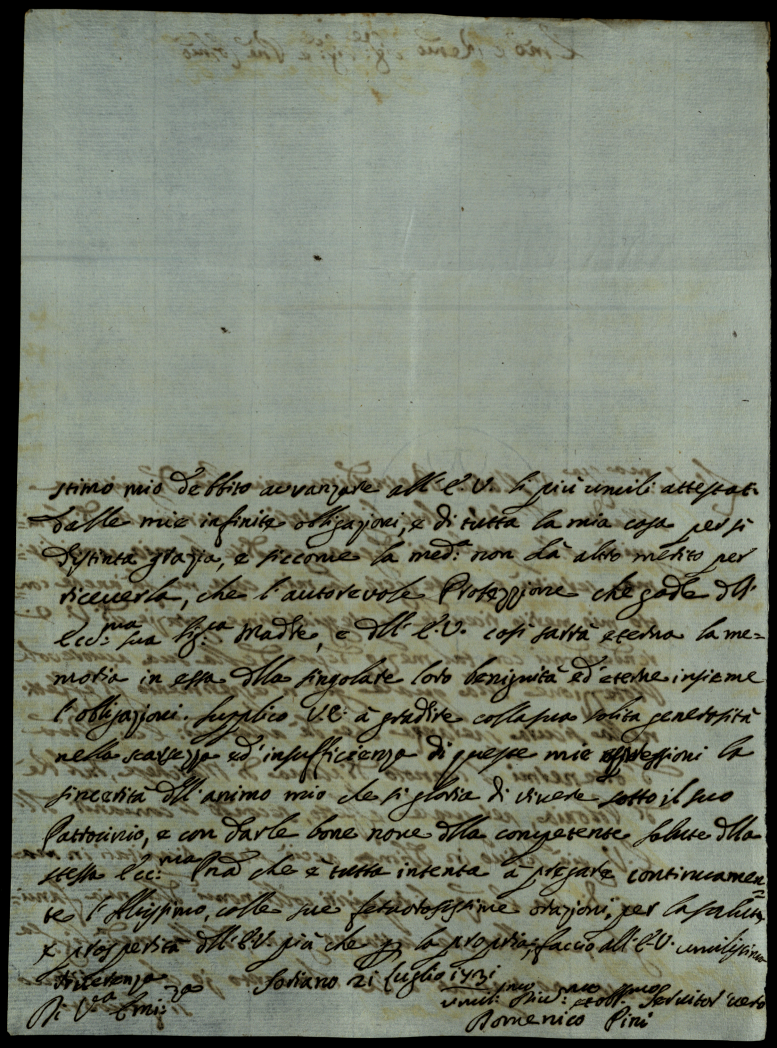 stimo mio debbito avvanzare all' E. V. li più umili attestati
dalle mie infinite obligazioni, e di tutta la mia casa per sì
distinta grazia, e siccome la med.ª non dà altro merito per
riceverla, che l'autorevole Protezzione che gode dll'
Ecc:ma sua Sig:ra Madre, e dll' E. V. così sarrà eterna la me=
moria in essa dlla singolare loro benignità ed' eterne insieme
l'obligazioni. Supplico V. E. à gradire colla sua solita generosità
nella scarsezza ed' insufficienza di queste mie espressioni la
sincerità dll' animo mio che si gloria di vivere sotto il suo
Patrocinio, e con darle bone nove dlla competente salute dlla
stessa Ecc:ma Pnà che è tutta intenta à pregare continuamen=
te l'Altissimo, colle sue fervorosissime orazioni, per la salute,
x prosperità dll' E. V. più che per la propria; faccio all' E. V. umilissima
riverenza
Soriano 21 Luglio 1731
Di V.ra Emi:za
Umil:mo Div:mo et obll:mo Servitor vero
Domenico Pini